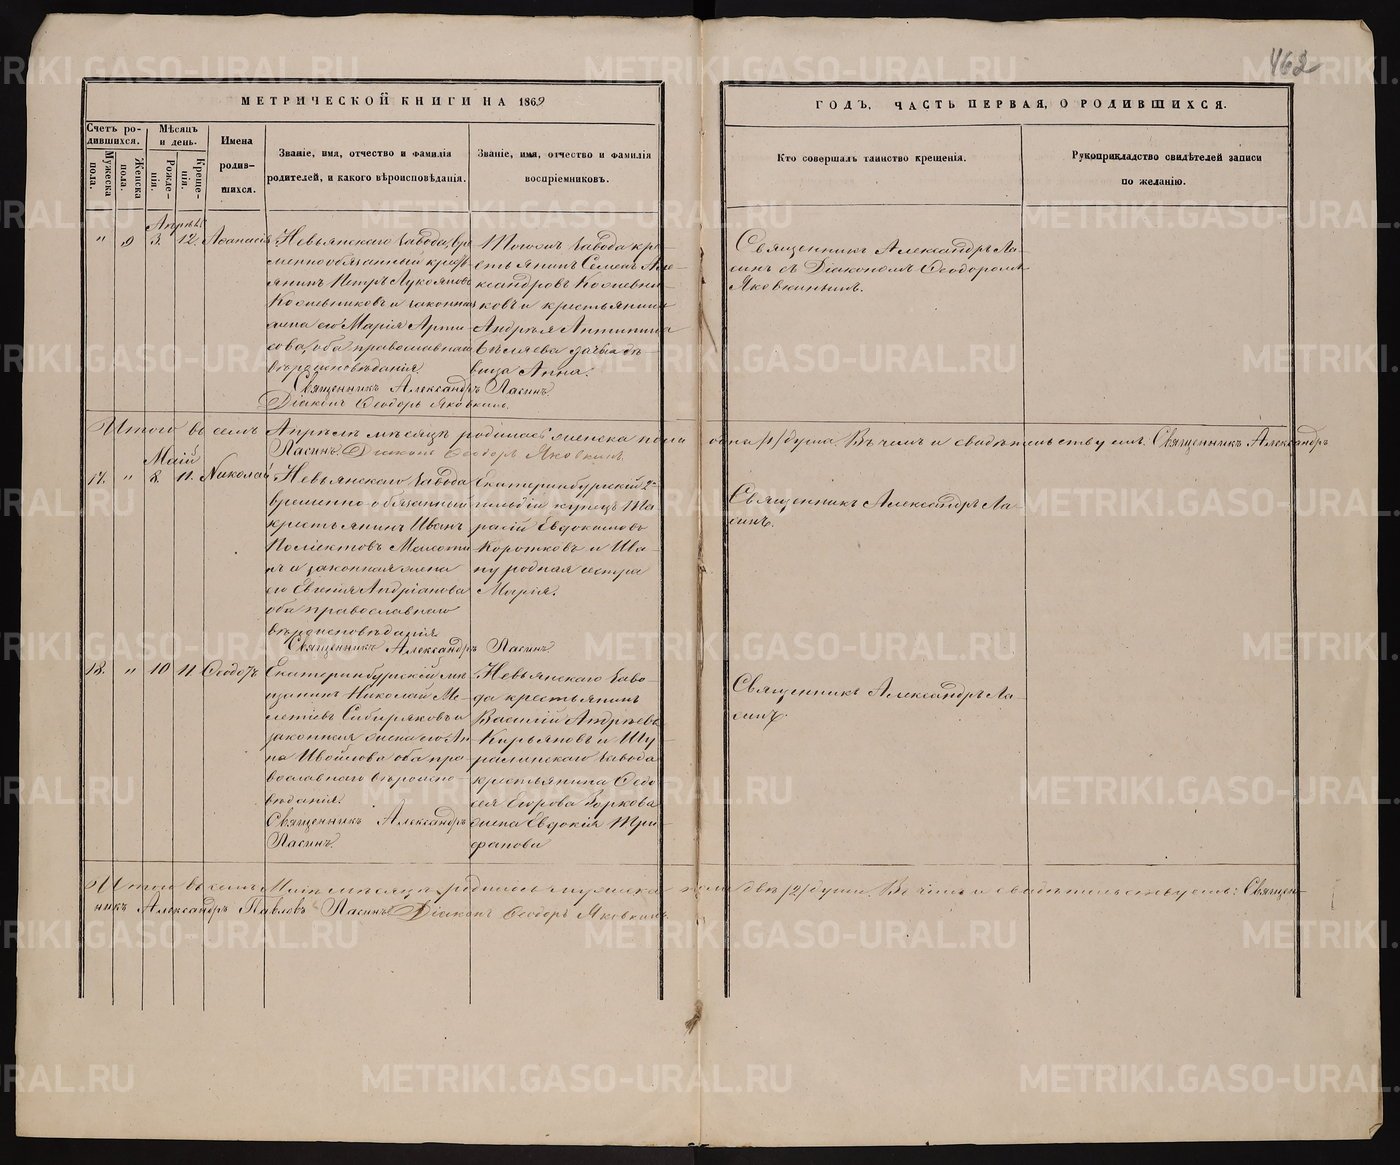 462
МЕТРИЧЕСКОЙ КНИГИ НА 1869
ГОДЪ, ЧАСТЬ ПЕРВАЯ, О РОДИВШИХСЯ.
Счетъ ро-
дившихся.
Мужеска
пола.
Женска
пола.
Мѣсяцъ
и день.
Рожде-
нія.
Креще-
нія.
Имена
родив-
шихся.
Званіе, имя, отчество и фамилія
родителей, и какого вѣроисповѣданія.
Званіе, имя, отчество и фамилія
воспріемниковъ.
Кто совершалъ таинство крещенія.
Рукоприкладство свидѣтелей записи
по желанію.
Апрѣль
" 9 3. 12. Афанасія
Невьянскаго завода вре
менно обязанный кресть
янинъ Петръ Лукояновъ
и законная
жена его Марія Арте
оба православнаго
вѣроисповѣданія.
Тогожъ завода кре-
стьянинъ Семенъ Але-
ксандровъ
ковъ и крестьянина
Андрея Антипина
Бѣляева дочь дѣ-
вица Анна.
Священникъ Александръ Ласинъ.
Діаконъ Ѳеодоръ Яковкинъ.
Священникъ Александръ Ла-
синъ съ Діакономъ Ѳеодоромъ
Яковкинымъ.
Итого въ семъ Апрѣлѣ мѣсяцѣ родилась женска пола одна /1/ душа. Въ чемъ и свидѣтельствуемъ: Священникъ Александръ
Ласинъ. Діаконъ Ѳеодоръ Яковкинъ.
Маій
17. " 8. 11. Николай
Невьянскаго завода
временно-обязанный
крестьянинъ Иванъ
Поліектовъ
и законная жена
его Евгенія Андріанова
оба православнаго
вѣроисповѣданія
Екатеринбургскій 2й
гильдіи купецъ Та-
расій Евдокимовъ
Коротковъ и Ива-
ну родная сестра
Марія.
Священникъ Александръ Ласинъ.
Священникъ Александръ Ла-
синъ.
18. " 10 11. Ѳеодоръ
Екатеринбургскій мѣ-
щанинъ Николай Ме-
летіевъ Сибиряковъ и
законная жена его Ан-
на оба пра-
вославнаго вѣроиспо-
вѣданія.
Священникъ Александръ
Ласинъ.
Невьянскаго заво-
да крестьянинъ
Василій Андреевъ
Кирьяновъ и Шу-
ралинскаго завода
крестьянина Ѳедо-
сея Егорова Зоркова
жена Евдокія Три-
фанова
Священникъ Александръ Ла-
синъ.
Итого въ семъ Маіѣ мѣсяцѣ родилось мужеска пола двѣ /2/ души. Въ чемъ и свидѣтельствуемъ: Священ-
никъ Александръ Павловъ Ласинъ. Діаконъ Ѳеодоръ Яковкинъ.
METRIKI.GASO-URAL.RU